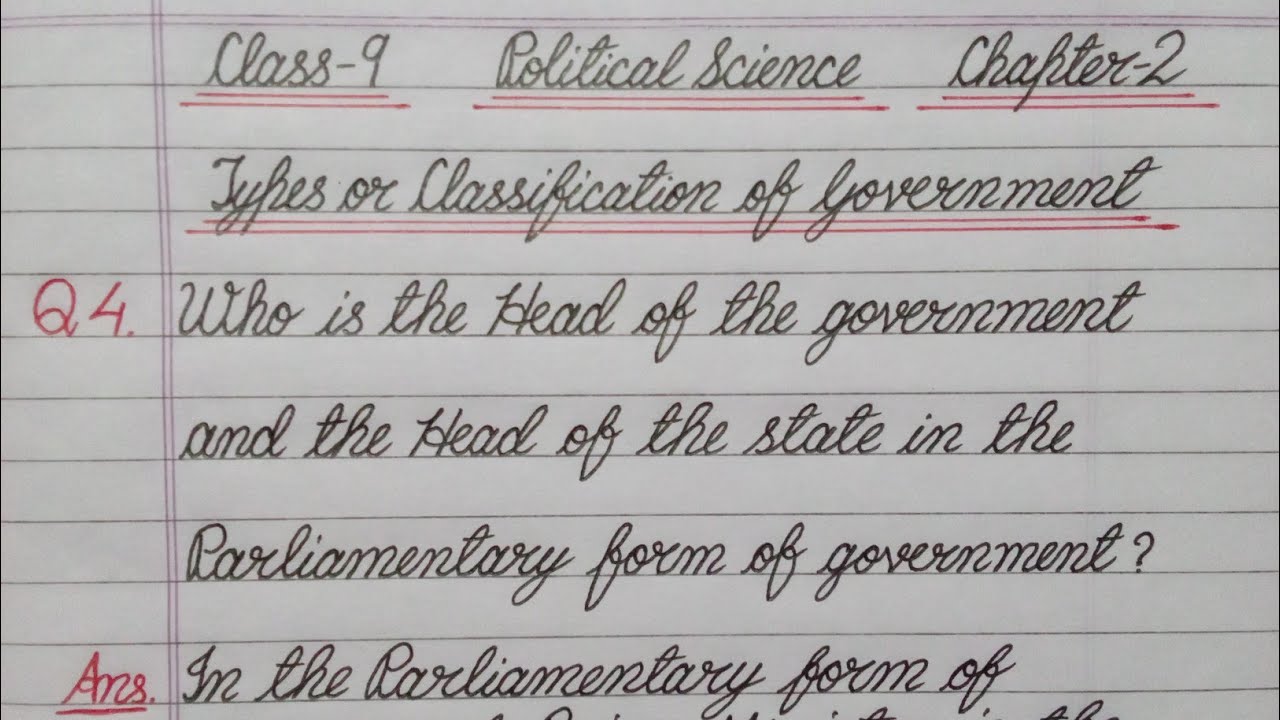 Class-9 Political Science Chapter-2
Types or Classification of Government
Q4. Who is the Head of the government
and the Head of the state in the
Parliamentary form of government?
Ans. In the Parliamentary form of